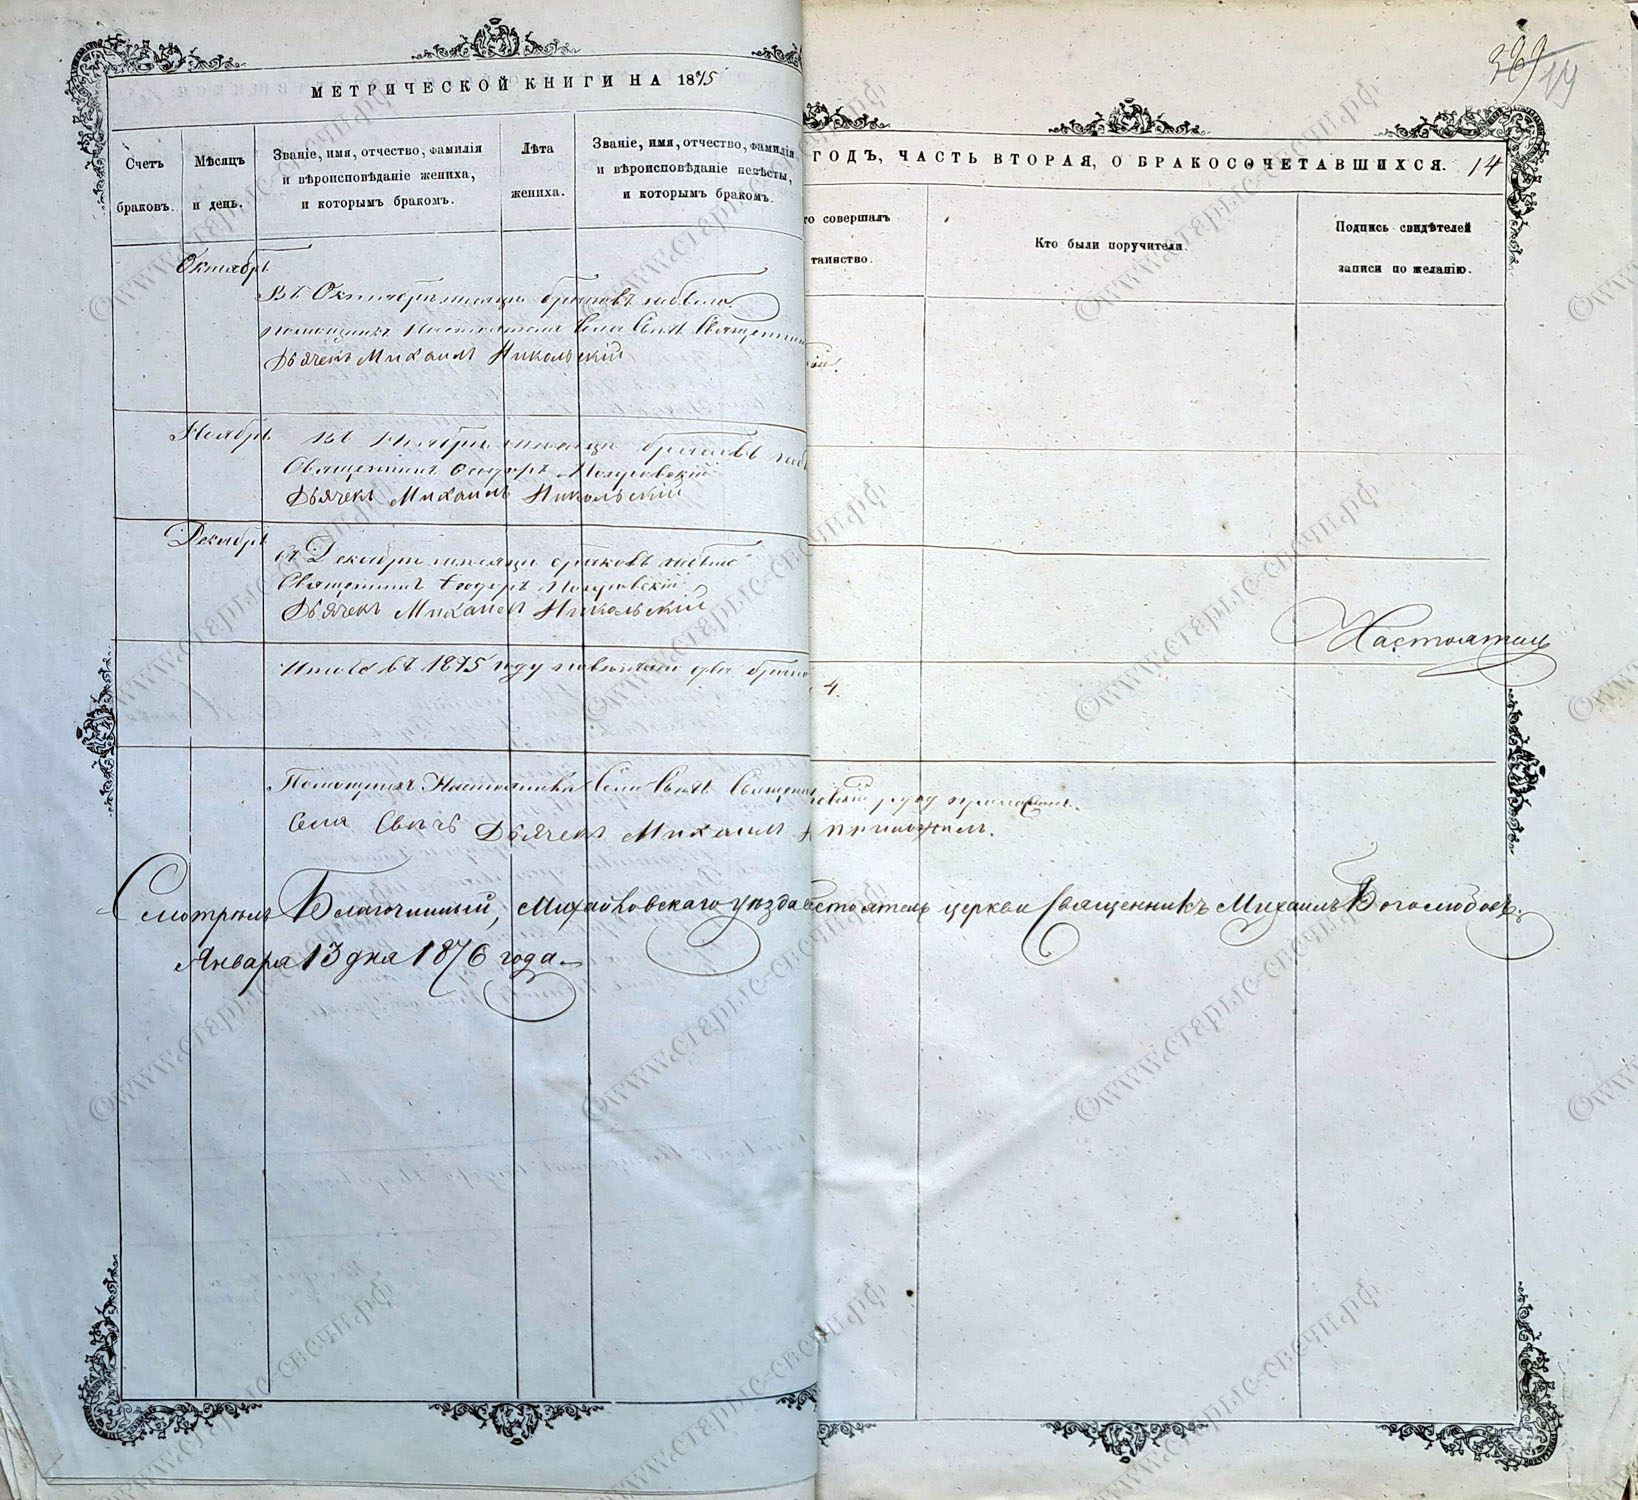 МЕТРИЧЕСКОЙ КНИГИ НА 1875
ГОДЪ, ЧАСТЬ ВТОРАЯ, О БРАКОСОЧЕТАВШИХСЯ. 14
Счетъ браковъ.
Мѣсяцъ и день.
Званіе, имя, отчество, фамилія
и вѣроисповѣданіе жениха,
и которымъ бракомъ.
Лѣта жениха.
Званіе, имя, отчество, фамилія
и вѣроисповѣданіе невѣсты,
и которымъ бракомъ.
то совершалъ
таинство.
Кто были поручители.
Подпись свидѣтелей
записи по желанію.
Октябрь
Въ Октябрѣ мѣсяцѣ браковъ небыло.
Помощникъ Настоятеля Села Священни
Дьячекъ Михаилъ Никольскій
Ноябрь
Въ Ноябрѣ мѣсяцѣ браковъ неб
Священникъ Ѳеодоръ
Дьячекъ Михаилъ Никольскій
Декабрь
въ Декабрѣ мѣсяцѣ браковъ небыло
Священникъ Ѳеодоръ
Дьячекъ Михаилъ Никольскій
Настоятель
Итого въ 1875 году повѣнчано два брака
4.
Помощникъ Настоятеля Села Священ
Села Дьячекъ Михаилъ приложилъ.
Смотрѣлъ Благочинный, Михайловскаго уѣзда церкви Священникъ Михаилъ Боголюбовъ.
Января 13 дня 1876 года.
©www.старыс-свсчи.рф